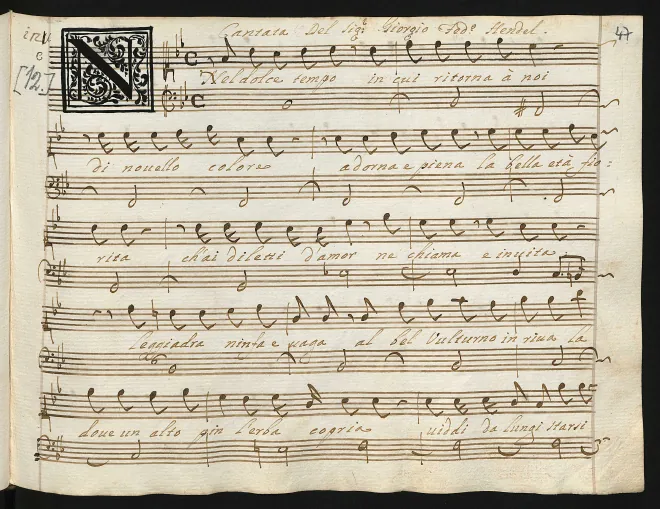 Cantata Del Sig.e Giorgio Fed.e Hendel.
47
[12.]
Nel dolce tempo in cui ritorna à noi
di nouello colore adorna e piena la bella età fio:
rita ch'ai diletti d'amor ne chiama e inuita
leggiadra ninfa e uaga al bel Vulturno in riua la
doue un alto pin l'erba copria uiddi da lungi starsi